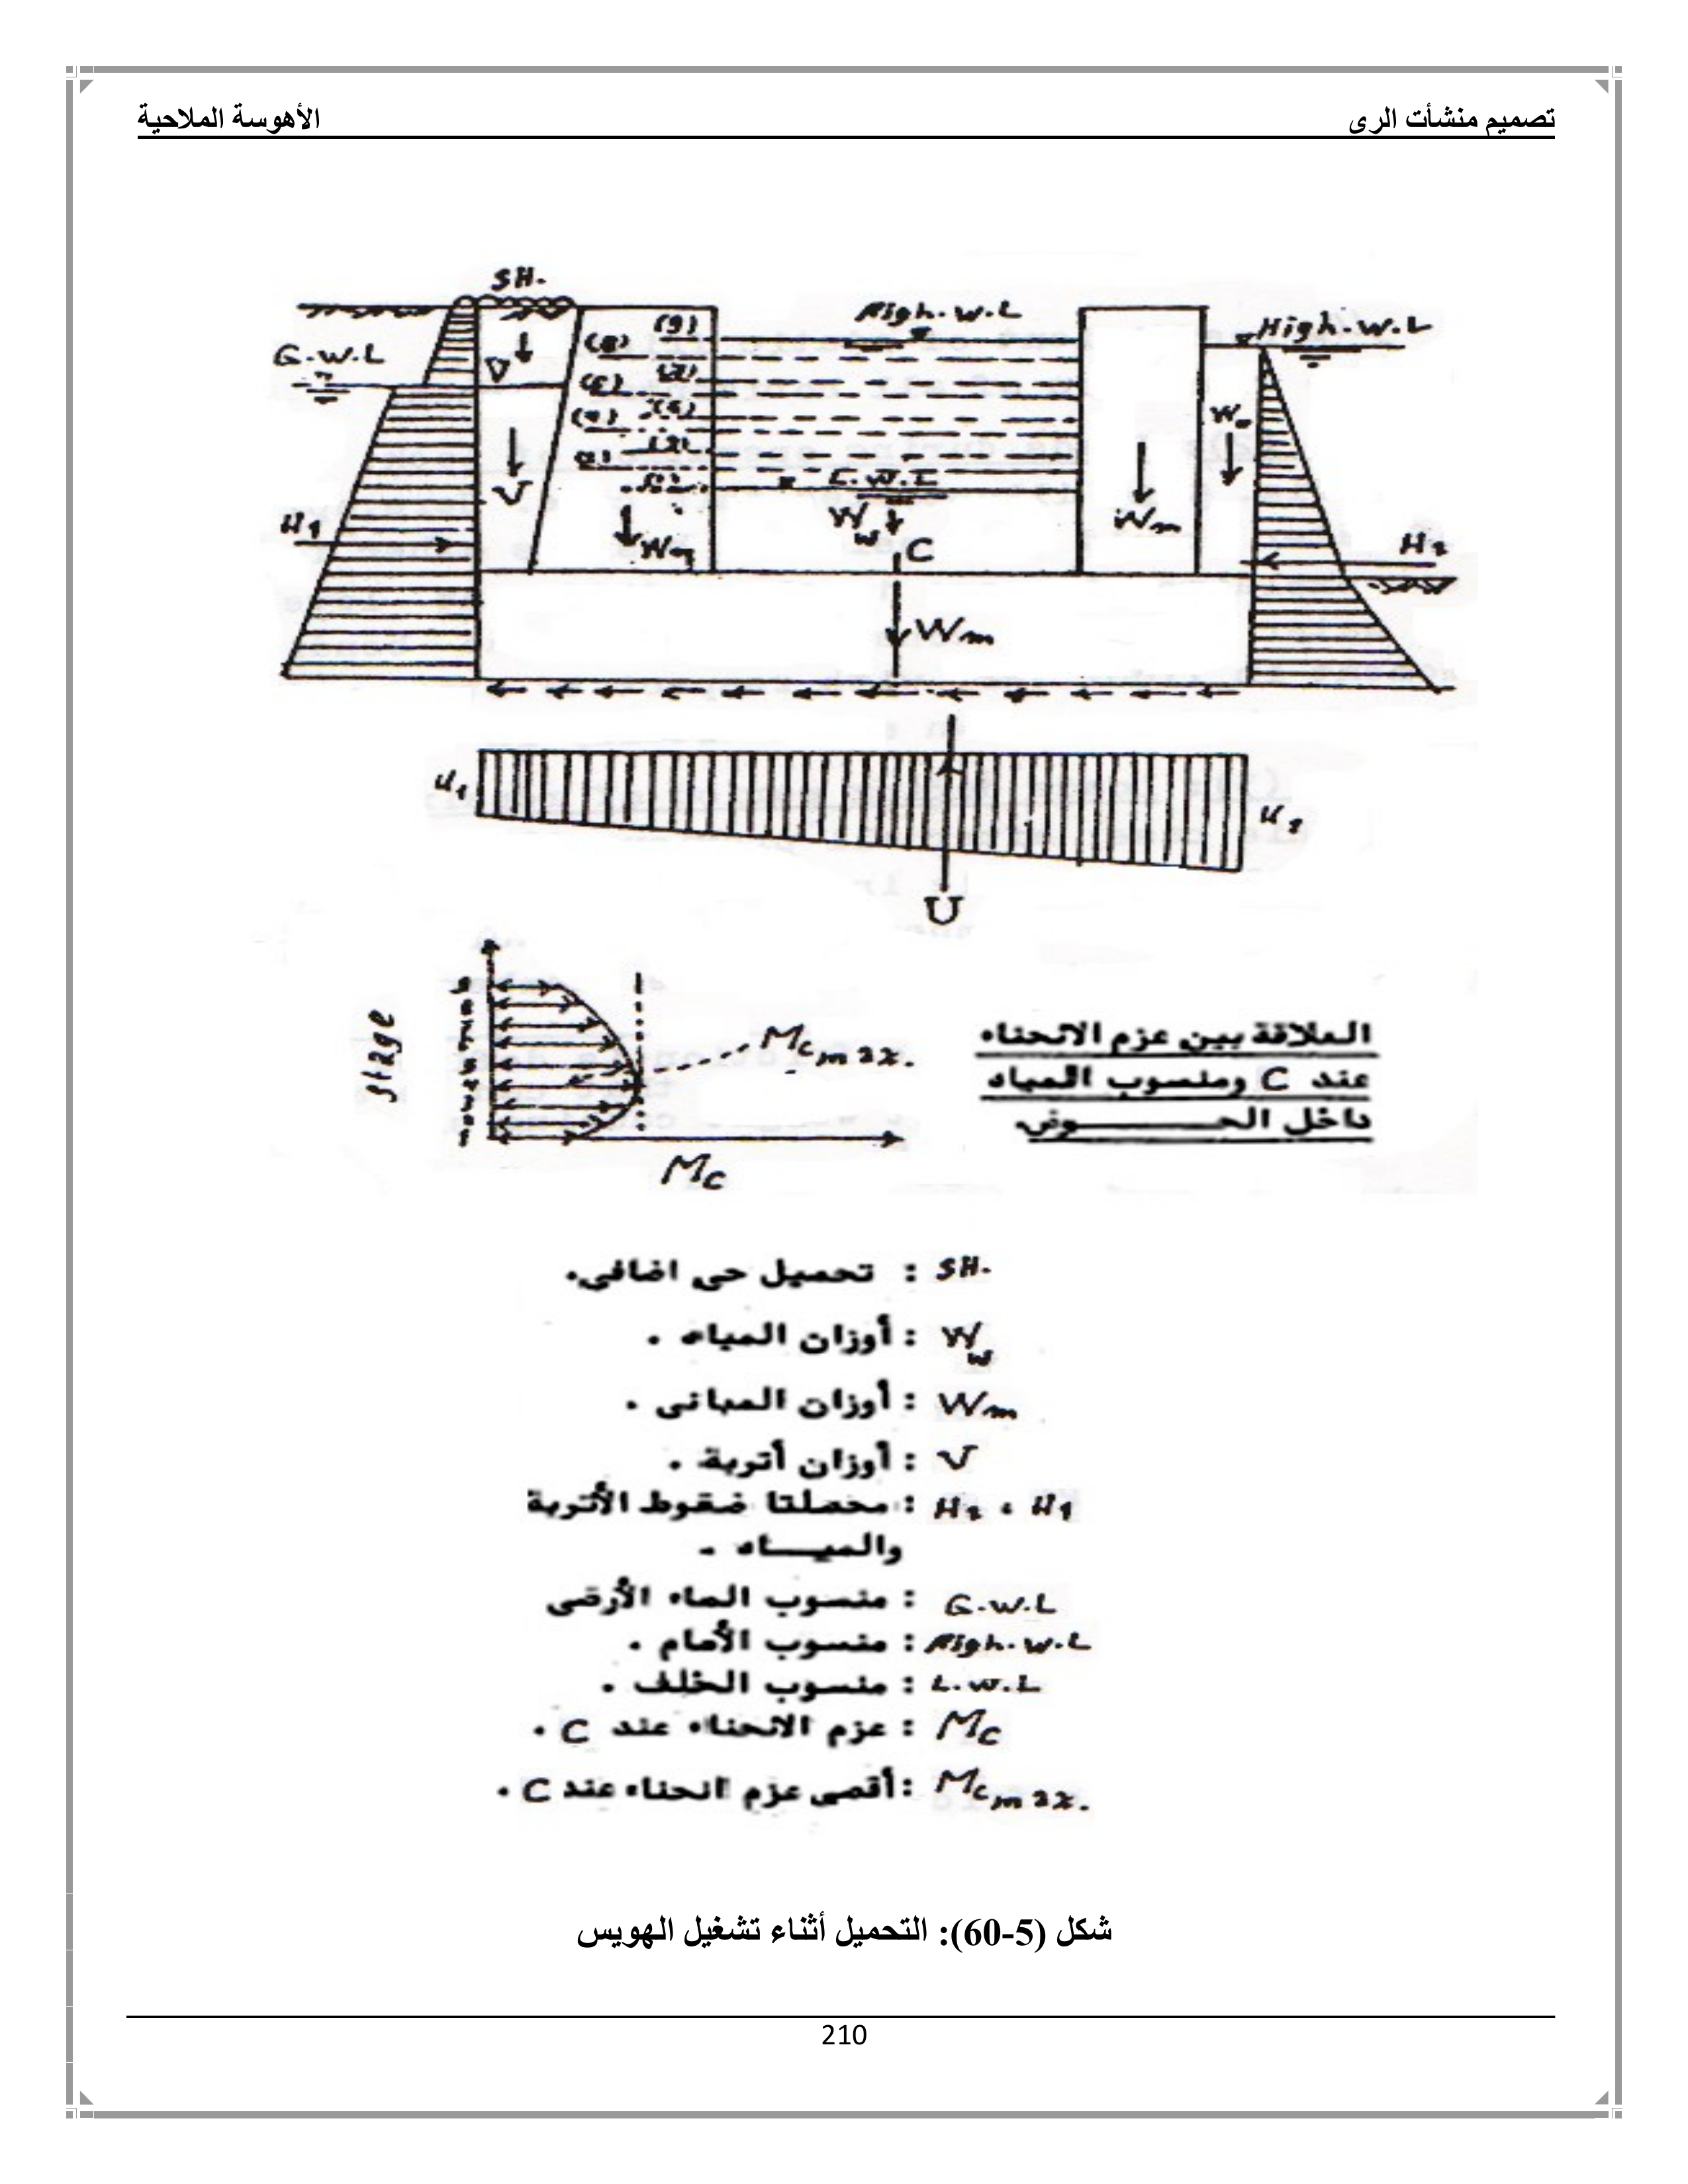 تصميم منشأت الرى
الأهوسة الملاحية
SH.
High.W.L
High.W.L
G.W.L
(9)
(8)
V
Ww
L.W.L
V
Ww
Wm
Wm
H1
C
H2
Wm
u1
u2
U
stage
Mc max.
Mc
العلاقة بين عزم الانحناء
عند C ومنسوب المياه
داخل الحوض
SH. : تحميل حى اضافى.
Ww : أوزان المياه .
Wm : أوزان المبانى .
V : أوزان أتربة .
H1 ، H2 : محصلتا ضغوط الأتربة
والمياه .
G.W.L : منسوب الماء الأرضى
High.W.L : منسوب الأمام .
L.W.L : منسوب الخلف .
Mc : عزم الانحناء عند C .
Mc max. : أقصى عزم انحناء عند C .
شكل (5-60): التحميل أثناء تشغيل الهويس
210